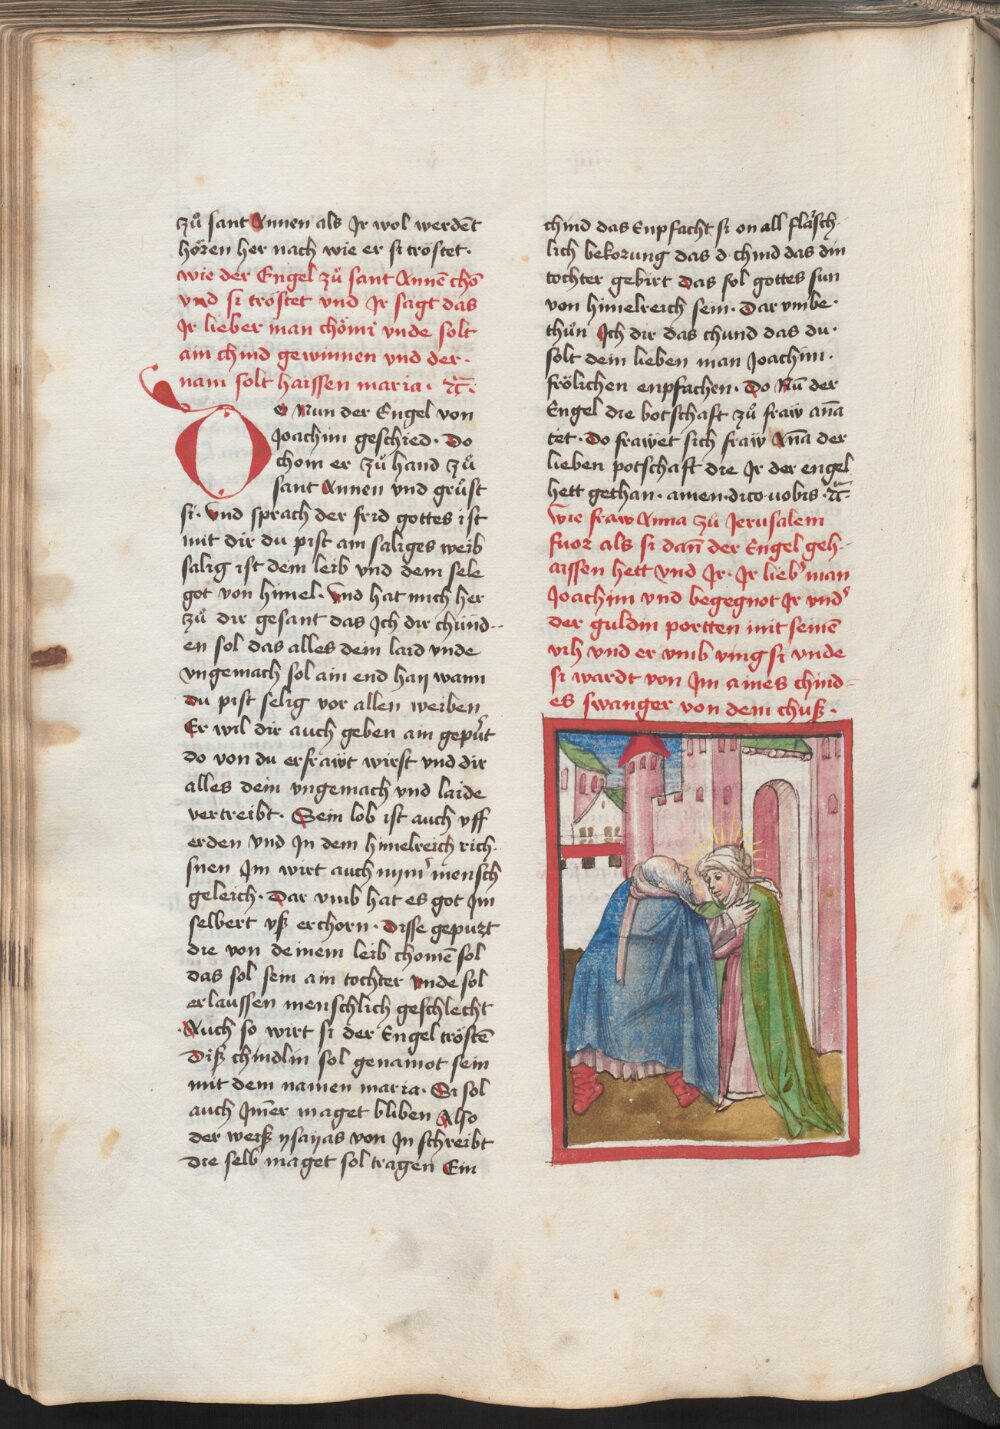 zů sant Annen als Jr wol werdēt
hören her nach wie er si tröstet·
wie der Engel zů sant Annē chō
vnd si tröstet vnd Jr sagt das
Jr lieber man chömi vnde solt
ain chind gewinnen vnd der·
nam solt haissen maria·
Do Nun der Engel von
Joachim geschied· Do
chom er zů hand zů
sant Annen vnd grůst
si· Vnd sprach der frid gottes ist
mit dir du pist ain saliges weib
salig ist dem leib vnd dem sele
got von himel· Vnd hat mich her
zů dir gesant das Jch dir chund-
en sol das alles dem laid vnde
vngemach sol ain end han wann
du pist selig vor allen weiben
Er wil dir auch geben ain gepurt
do von du erfräwt wirst vnd dir
alles dein vngemach vnd laide
vertreibt· Sein lob ist auch vff
erden vnd Jn dem himelreich rich-
snen Jm wirt auch nÿm̄ mensch
geleich· Dar vmb hat es got Jm
selbert vß erchorn· Disse gepurt
die von deinem leib chomē sol
das sol sein ain tochter vnde sol
erlaussen menschlich geschlecht
·Auch so wirt si der Engel tröstē
Diß chindlin sol genamot sein
mit dem namen maria· Si sol
auch Jm̄er maget bliben Also
der weiß ysayas von Jn schreibt
Die selb maget sol tragen Ein
chind das Enpfacht si on all fläsch-
lich bekorung das d· chind das din
tochter gebirt das sol gottes sun
von himelreich sein· Dar vmbe·
thůn Jch dir das chund das du·
solt dem lieben man Joachim·
frölichen enpfachen· Do Nū der
Engel die botschaft zů fraw añā
tet· Do frawet sich fraw Añā der
lieben potschaft die Jr der engel
hett gethan· amen· dico vobis·
Wie fraw Anna zů Jerusalem
fuor als si dañ der Engel geh-
aissen hett vnd Jr· Jr lieb' man
Joachim vnd begegnot Jr vnd'
der guldin portten mit seinē
vih vnd er vmb ving si vnde
si wardt von Jm aines chind-
es swanger von dem chuß·